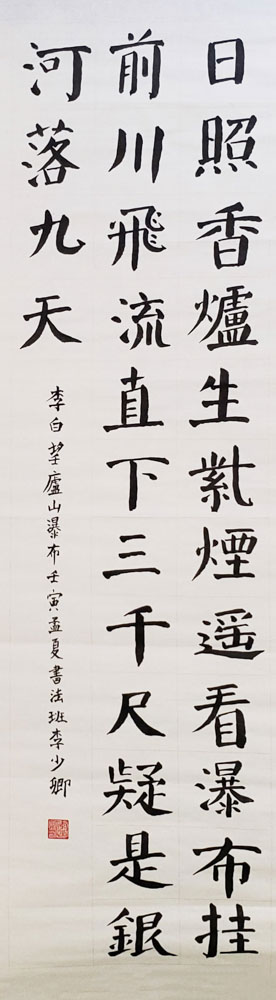 日照香爐生紫煙遥看瀑布挂
前川飛流直下三千尺疑是銀
河落九天
李白望廬山瀑布壬寅孟夏書法班李少卿